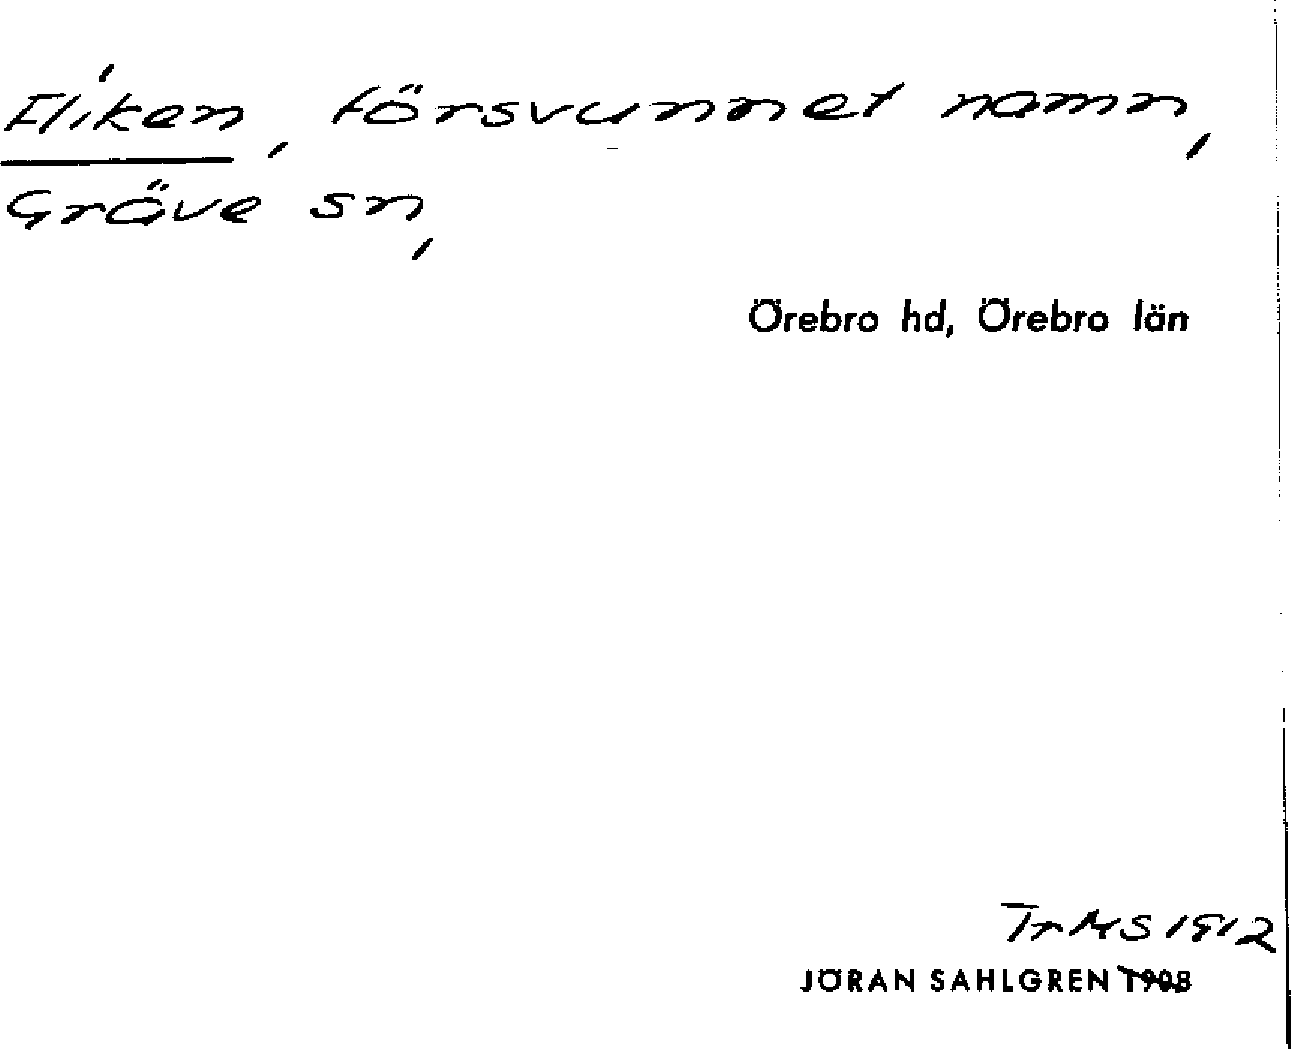 Fliken, försvunnet namn,
Gräve sn,
Örebro hd, Örebro län
1912
JÖRAN SAHLGREN 1908